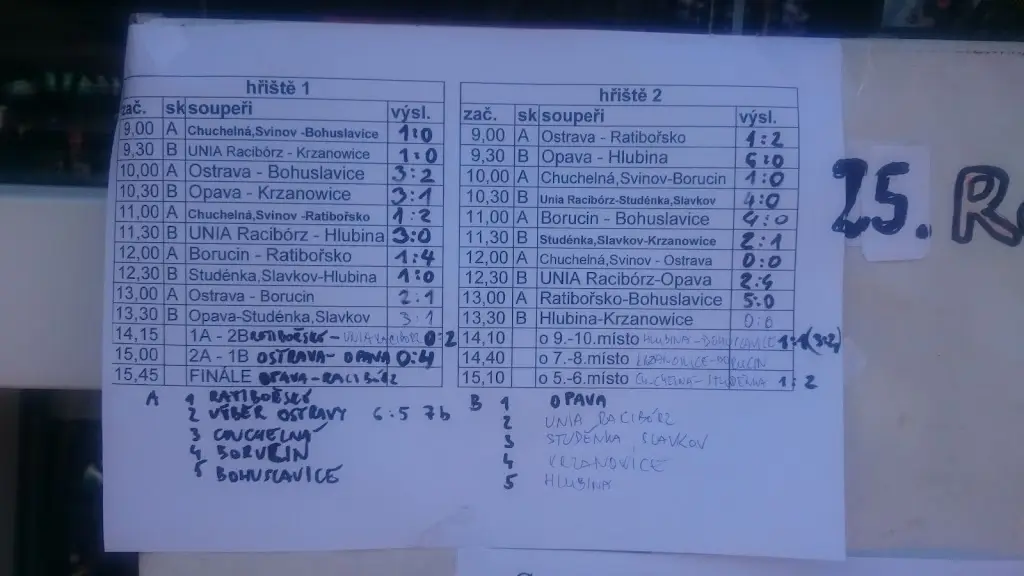 hřiště 1
zač. sk soupeři výsl.
9,00 A Chuchelná,Svinov -Bohuslavice 1:0
9,30 B UNIA Racibórz - Krzanowice 1:0
10,00 A Ostrava - Bohuslavice 3:2
10,30 B Opava - Krzanowice 3:1
11,00 A Chuchelná,Svinov -Ratibořsko 1:2
11,30 B UNIA Racibórz - Hlubina 3:0
12,00 A Borucin - Ratibořsko 1:4
12,30 B Studénka,Slavkov-Hlubina 1:0
13,00 A Ostrava - Borucin 2:1
13,30 B Opava-Studénka,Slavkov 3:1
14,15 1A - 2B RATIBOŘSKO - UNIA RACIBÓRZ 0:2
15,00 2A - 1B OSTRAVA - OPAVA 0:4
15,45 FINÁLE OPAVA - RACIBÓRZ
hřiště 2
zač. sk soupeři výsl.
9,00 A Ostrava - Ratibořsko 1:2
9,30 B Opava - Hlubina 6:0
10,00 A Chuchelná,Svinov-Borucin 1:0
10,30 B Unia Racibórz-Studénka,Slavkov 4:0
11,00 A Borucin - Bohuslavice 4:0
11,30 B Studénka,Slavkov-Krzanowice 2:1
12,00 A Chuchelná,Svinov - Ostrava 0:0
12,30 B UNIA Racibórz-Opava
13,00 A Ratibořsko-Bohuslavice 5:0
13,30 B Hlubina-Krzanowice 0:0
14,10 o 9.-10.místo HLUBINA - BOHUSLAVICE 1:1 (3:2)
14,40 o 7.-8.místo KRZANOWICE - BORUCIN
15,10 o 5.-6.místo CHUCHELNÁ - STUDÉNKA 1:2
A 1 RATIBOŘSKO
2 VÝBĚR OSTRAVY 6:5 7b
3 CHUCHELNÁ
4 BORUCIN
5 BOHUSLAVICE
B 1 OPAVA
2 UNIA RACIBÓRZ
3 STUDÉNKA, SLAVKOV
4 KRZANOVICE
5 HLUBINA
25. R